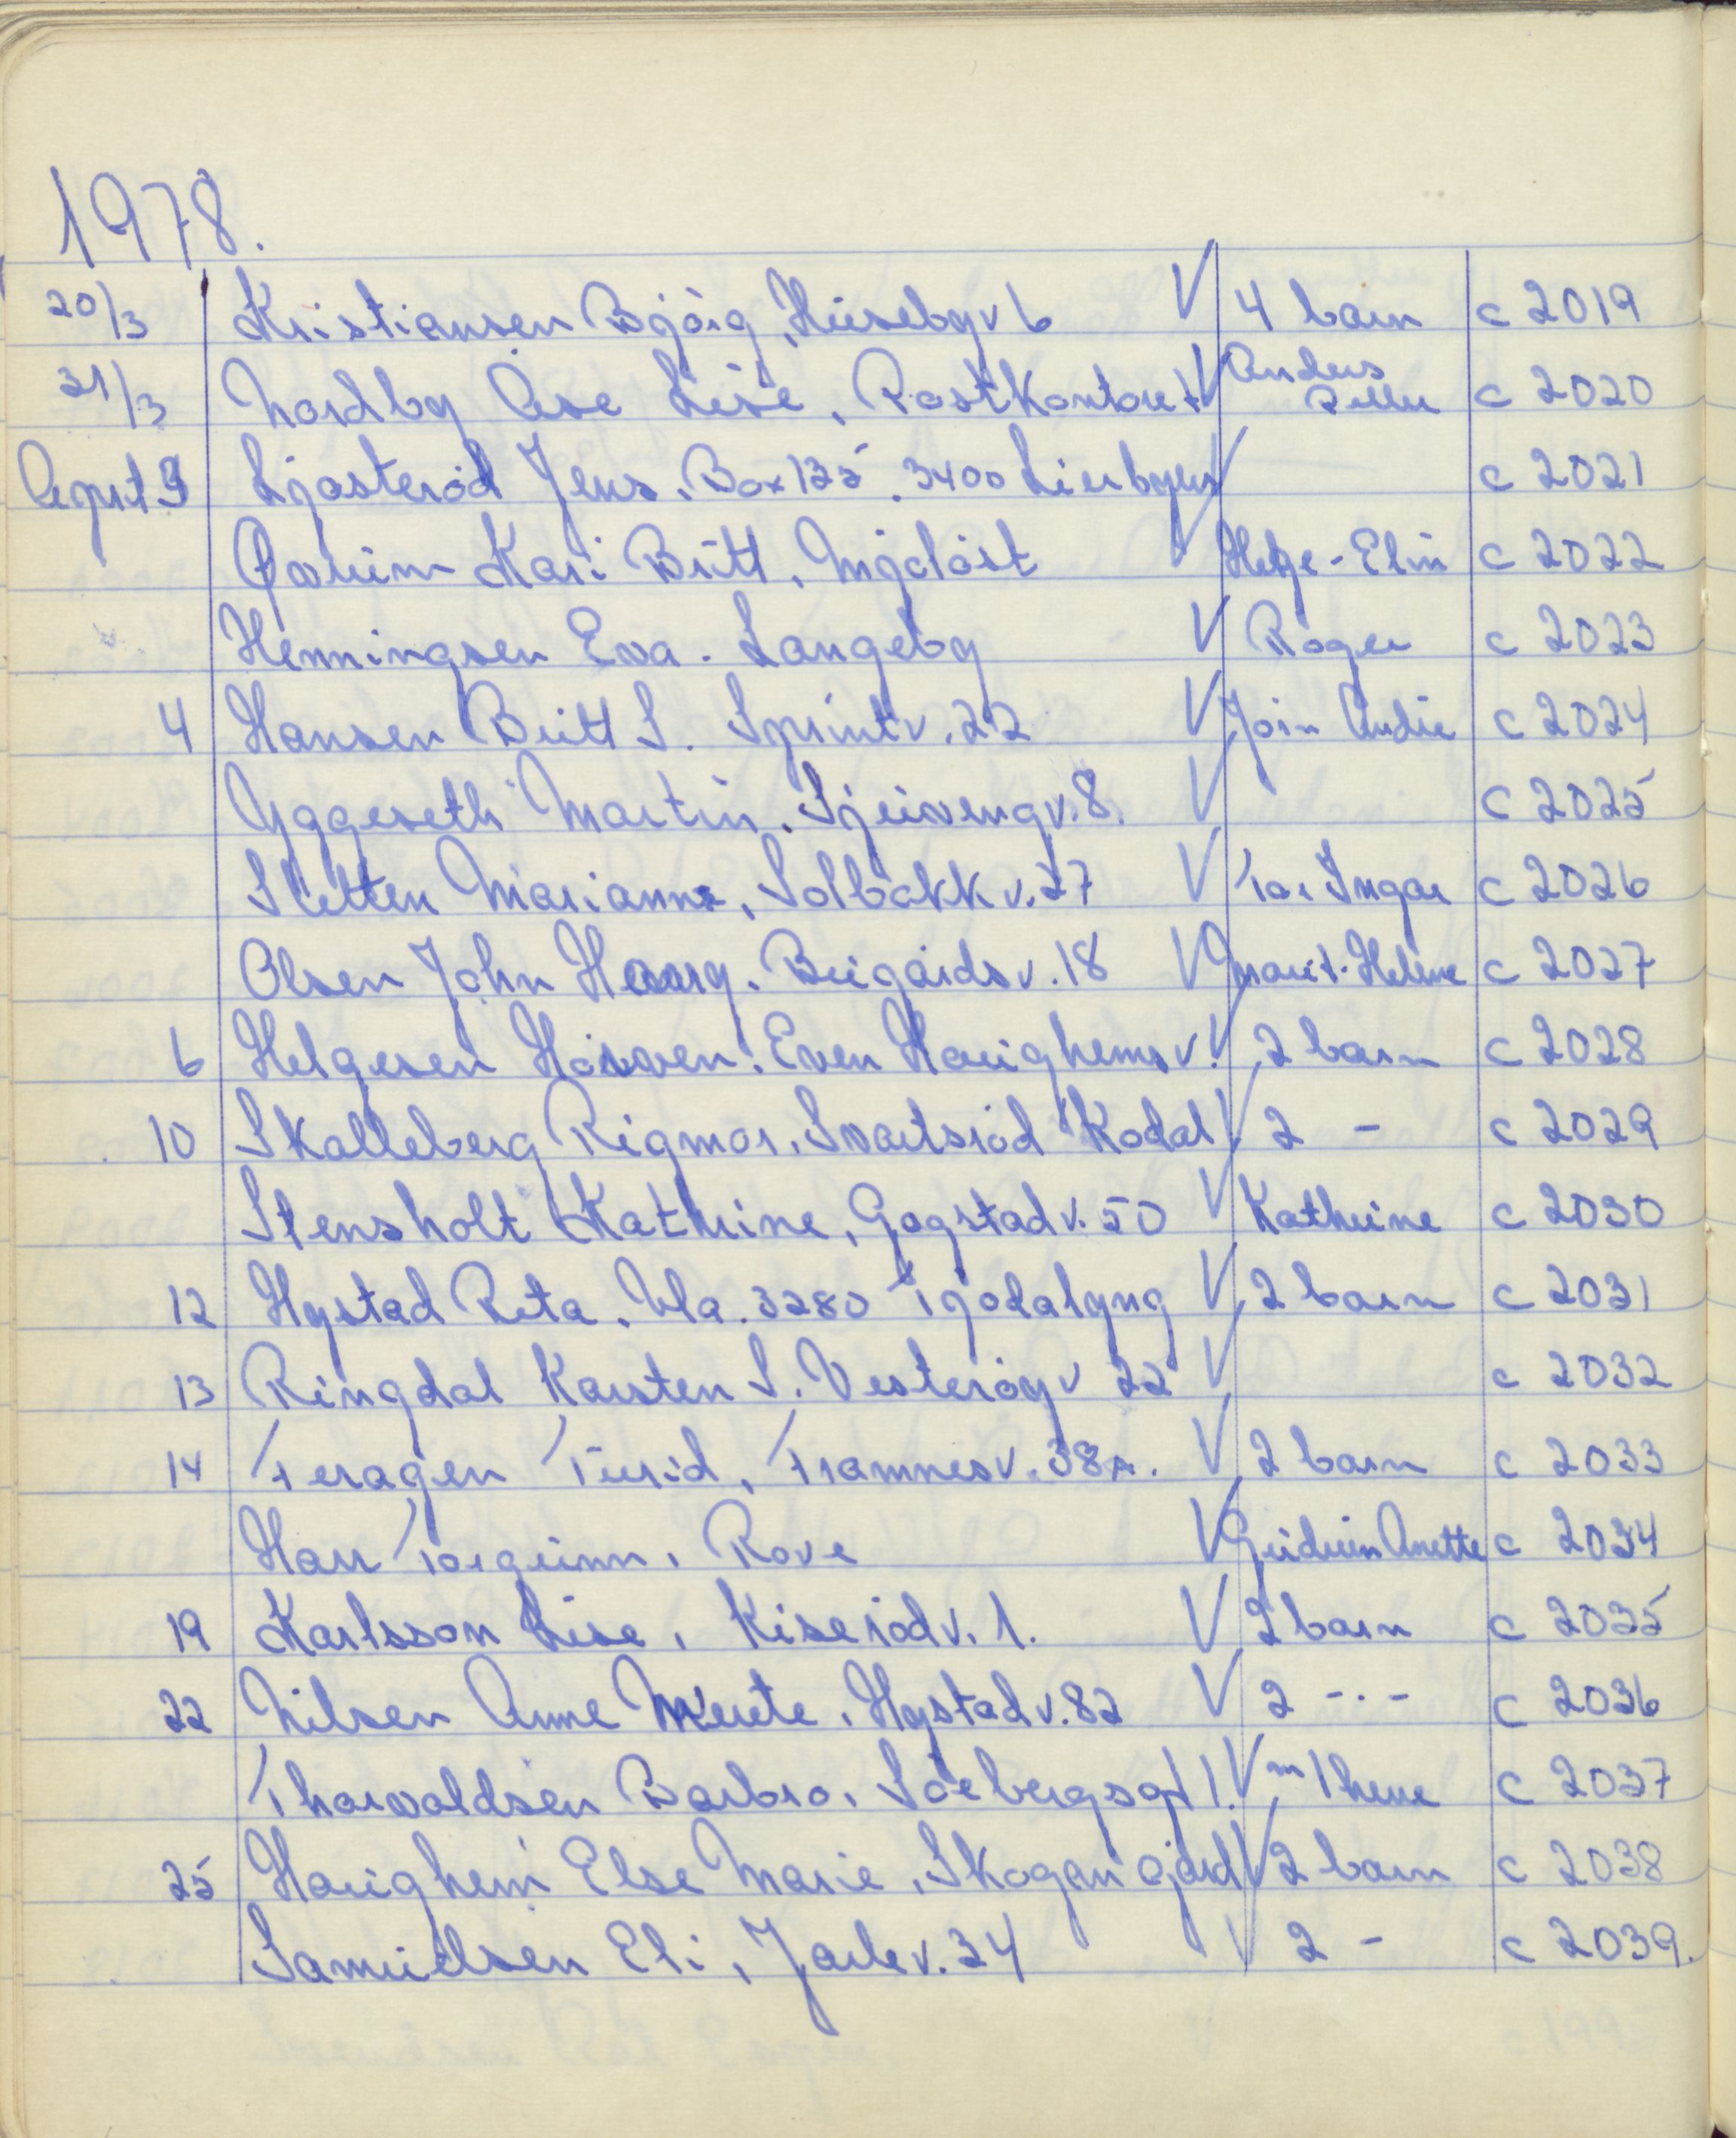 1978.
20/3 Kristiansen Bjørg, Husebyv 6 V 4 barn c 2019
31/3 Nordby Åse Lise, Postkontoret V Anders c 2020
April 3 Ljosterød Jens. Box 135. 3400 Lierbyen V c 2021
Kari Britt, V Helge-Elin c 2022
Henningsen Eva. Langeby V Roger c 2023
4 Hansen Britt S. Sprintv. 22 V Jørn Andre c 2024
Yggeseth Martin. V c 2025
Sletten Marianne, Solbakkv. 27 V Tor Ingar c 2026
Olsen John Harry. Breigårdsv. 18 V Marit-Helene c 2027
6 Helgesen Even Haughemsv. V 2 barn c 2028
10 Skalleberg Rigmor. Svartsrød Kodal V 2 - c 2029
Stensholt Kathrine, Gogstadv. 50 V Kathrine c 2030
12 Hystad Rita. Ula. 3280 Tjodalyng V 2 barn c 2031
13 Ringdal Karsten S. Vesterøyv 22 V c 2032
14 Feragen Turid, Framnesv. 38A. V 2 barn c 2033
Harr Torgrunn. Rove V Guidrun Anette c 2034
19 Karlsson Lise. Kiserødv. 1. V 2 barn c 2035
22 Nilsen Anne Merete. Hystadv. 82 V 2 -.- c 2036
Thorvaldsen Barbro. Søebergsgt 1. V c 2037
25 Haughem Else Marie. Skogan gård V 2 barn c 2038
Samuelsen Eli, Jarlev. 34 V 2 - c 2039.